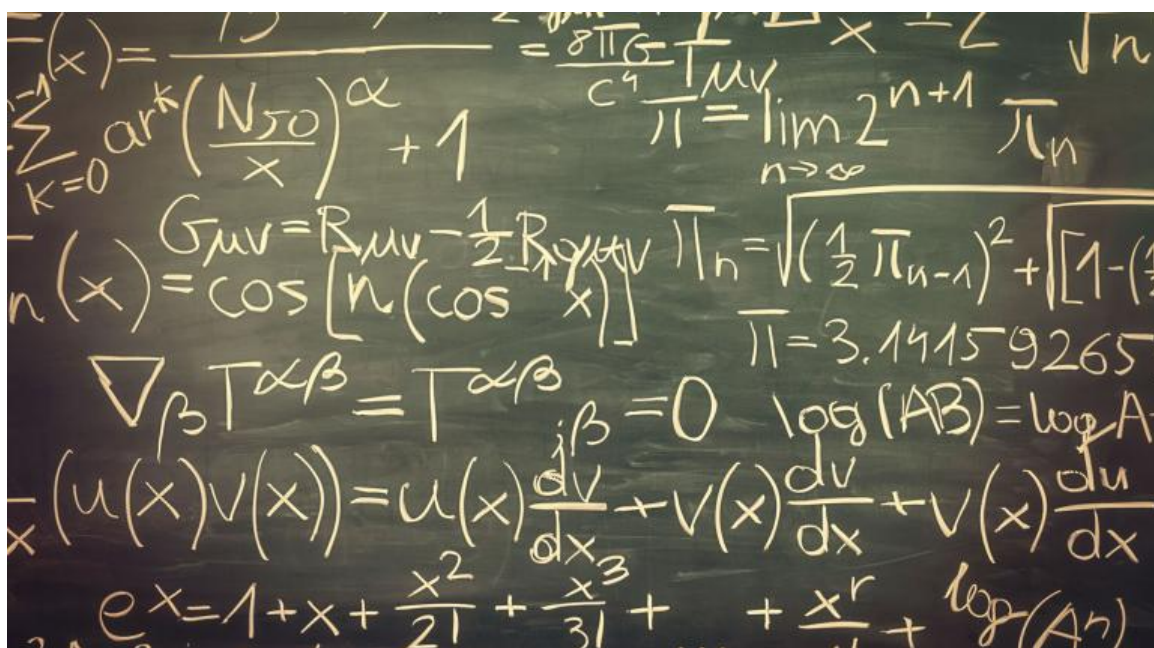 (x)=
= 8πG/c⁴ Tμν
x
√n
n-1 ∑ k=0 ar^k (N50/x)^α + 1
π = lim n→∞ 2^(n+1) πn
Gμν = Rμν - 1/2 R
πn = √((1/2 πn-1)² + √[1-(
n(x) = cos[n(cos⁻¹ x)]
π = 3.14159265
∇β T^αβ = T^αβ ;β = 0
log(AB) = log A
x (u(x)v(x)) = u(x) dv/dx + v(x) dv/dx + v(x) du/dx
e^x = 1 + x + x²/2! + x³/3! + + x^r +
log(A^n)